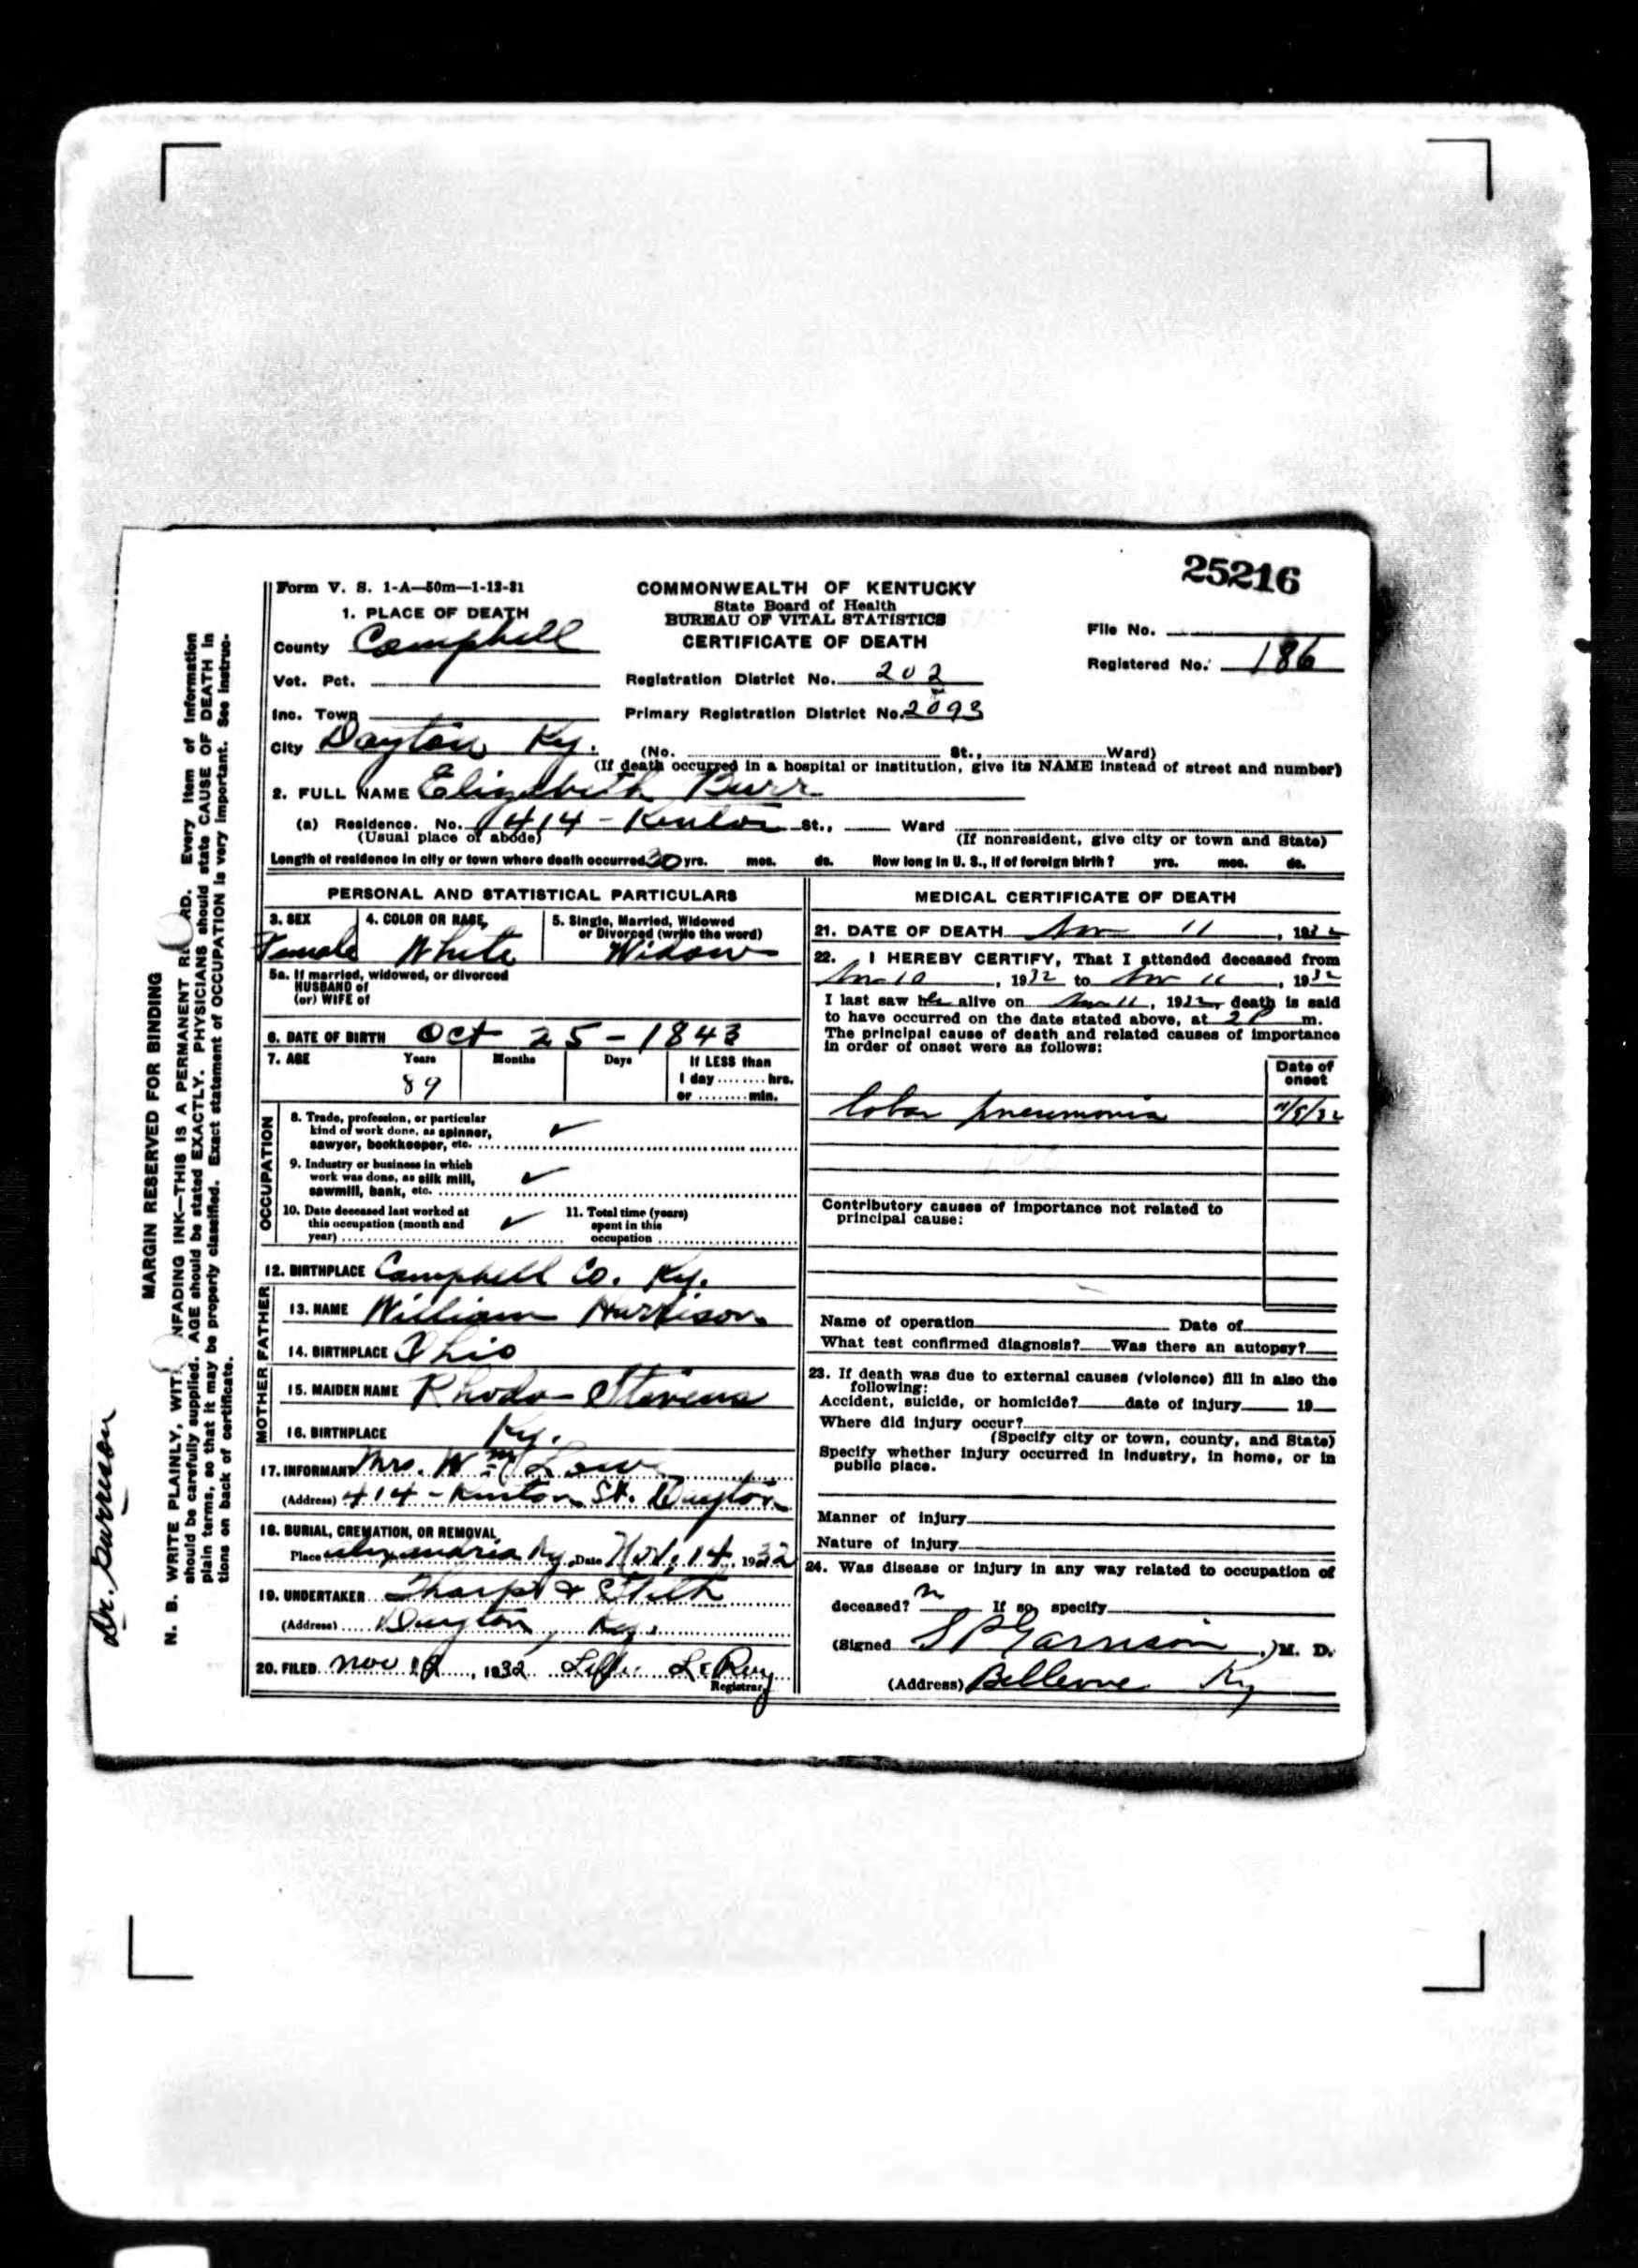 25216
Form V. S. 1-A—50m—1-12-31
COMMONWEALTH OF KENTUCKY
State Board of Health
BUREAU OF VITAL STATISTICS
CERTIFICATE OF DEATH
1. PLACE OF DEATH
County Campbell
File No.
Registered No. 186
Vot. Pct.
Registration District No. 202
Inc. Town
Primary Registration District No. 2093
City Dayton Ky. (No. St., Ward)
(If death occurred in a hospital or institution, give its NAME instead of street and number)
2. FULL NAME Elizabeth Burr
(a) Residence. No. 414 - Kenton St., Ward
(Usual place of abode) (If nonresident, give city or town and State)
Length of residence in city or town where death occurred 30 yrs. mos. ds. How long in U. S., if of foreign birth? yrs. mos. ds.
PERSONAL AND STATISTICAL PARTICULARS
3. SEX 4. COLOR OR RACE, 5. Single, Married, Widowed
or Divorced (write the word)
Female White Widow
5a. If married, widowed, or divorced
HUSBAND of
(or) WIFE of
6. DATE OF BIRTH Oct 25 - 1843
7. AGE Years Months Days If LESS than
89 1 day ........ hrs.
or ........ min.
OCCUPATION
8. Trade, profession, or particular
kind of work done, as spinner,
sawyer, bookkeeper, etc.
9. Industry or business in which
work was done, as silk mill,
sawmill, bank, etc.
10. Date deceased last worked at
this occupation (month and
year)
11. Total time (years)
spent in this
occupation
12. BIRTHPLACE Campbell Co. Ky.
FATHER
13. NAME William Harrison
14. BIRTHPLACE Ohio
MOTHER
15. MAIDEN NAME Rhoda Stevens
16. BIRTHPLACE Ky.
17. INFORMANT Mrs. Wm Low
(Address) 414 - Kenton St. Dayton
18. BURIAL, CREMATION, OR REMOVAL
Place Alexandria Ky Date Nov. 14, 1932
19. UNDERTAKER Tharp & Stith
(Address) Dayton, Ky.
20. FILED Nov 1932 Le Roy
Registrar
MEDICAL CERTIFICATE OF DEATH
21. DATE OF DEATH Nov 11, 1932
22. I HEREBY CERTIFY, That I attended deceased from
Nov 10, 1932 to Nov 11, 1932
I last saw her alive on Nov 11, 1932, death is said
to have occurred on the date stated above, at 2 P m.
The principal cause of death and related causes of importance
in order of onset were as follows:
Date of
onset
Lobar pneumonia 11/8/32
Contributory causes of importance not related to
principal cause:
Name of operation Date of
What test confirmed diagnosis? Was there an autopsy?
23. If death was due to external causes (violence) fill in also the
following:
Accident, suicide, or homicide? date of injury 19
Where did injury occur?
(Specify city or town, county, and State)
Specify whether injury occurred in industry, in home, or in
public place.
Manner of injury
Nature of injury
24. Was disease or injury in any way related to occupation of
deceased? no If so, specify
(Signed S P Garrison,) M. D.
(Address) Bellevue Ky
MARGIN RESERVED FOR BINDING
N. B. WRITE PLAINLY, WITH UNFADING INK—THIS IS A PERMANENT RECORD. Every item of information
should be carefully supplied. AGE should be stated EXACTLY. PHYSICIANS should state CAUSE OF DEATH in
plain terms, so that it may be properly classified. Exact statement of OCCUPATION is very important. See instruc-
tions on back of certificate.
Dr. Garrison